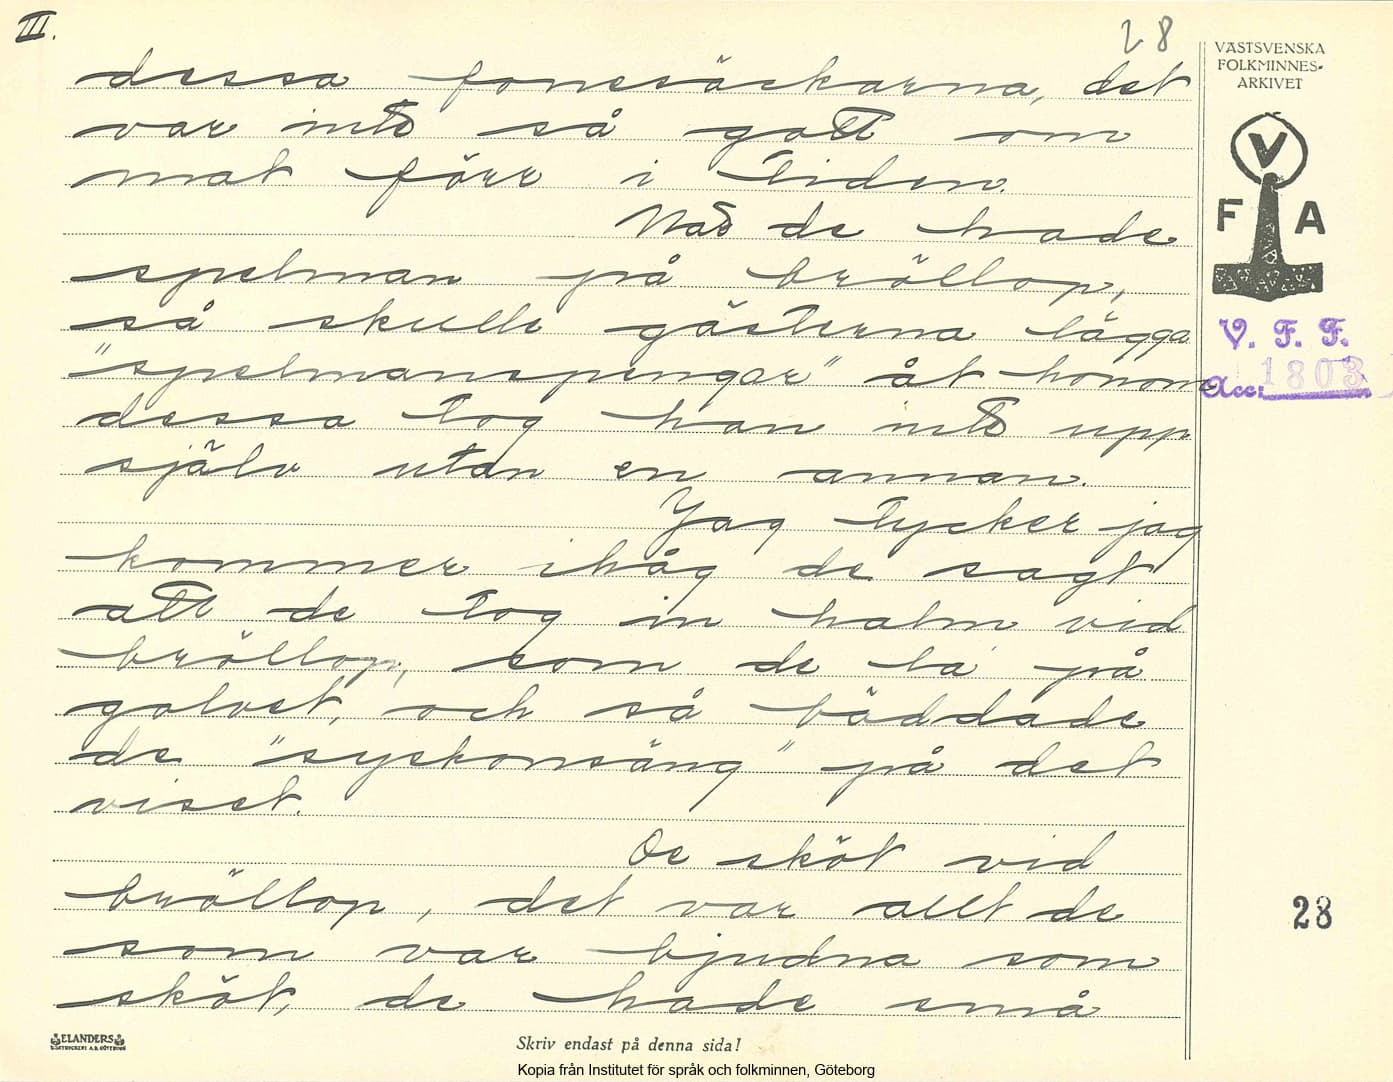 III.
28
VÄSTSVENSKA
FOLKMINNES-
ARKIVET
V
F A
V. F. F.
Acc: 1803
dessa fonesäckarna, det
var inte så gott om
mat förr i tiden.
När de hade
spelman på bröllop,
så skulle gästerna lägga
"spelmanspengar" åt honom
dessa tog han inte upp
själv utan en annan.
Jag tycker jag
kommer ihåg de sagt
att de tog in halm vid
bröllop, som de la på
golvet, och så bäddade
de "syskonsäng" på det
viset.
De sköt vid
bröllop, det var allt de
som var bjudna som
sköt, de hade små
28
ELANDERS
Skriv endast på denna sida!
Kopia från Institutet för språk och folkminnen, Göteborg